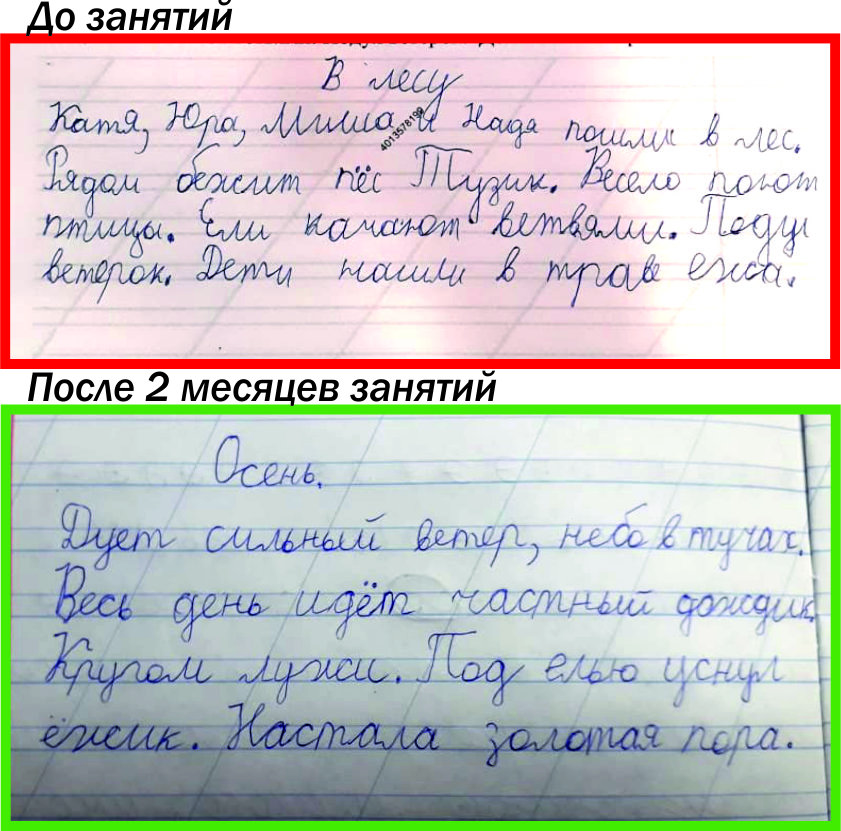 До занятий
В лесу
Катя, Юра, Миша и Надя пошли в лес.
4013578199
Рядом бежит пёс Тузик. Весело поют
птицы. Ели качают ветвями. Подул
ветерок. Дети нашли в траве ежа.
После 2 месяцев занятий
Осень.
Дует сильный ветер, небо в тучах.
Весь день идёт частный дождик.
Кругом лужи. Под елью уснул
ёжик. Настала золотая пора.